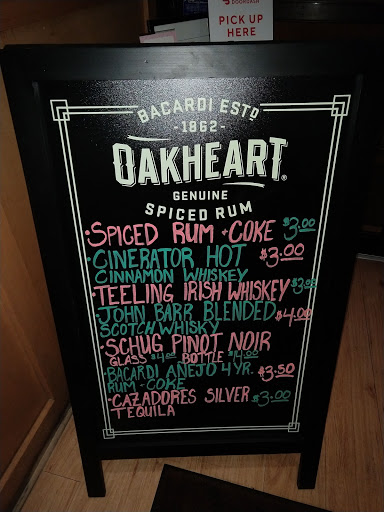 DOORDASH
PICK UP
HERE
BACARDI ESTD
-1862-
OAKHEART®
GENUINE
SPICED RUM
•SPICED RUM •COKE $3.00
•CINERATOR HOT $3.00
CINNAMON WHISKEY
•TEELING IRISH WHISKEY $3.00
•JOHN BARR BLENDED $4.00
SCOTCH WHISKY
•SCHUG PINOT NOIR
GLASS $4.00 BOTTLE $14.00
•BACARDI AÑEJO 4YR. $3.50
RUM •COKE
•CAZADORES SILVER $3.00
TEQUILA